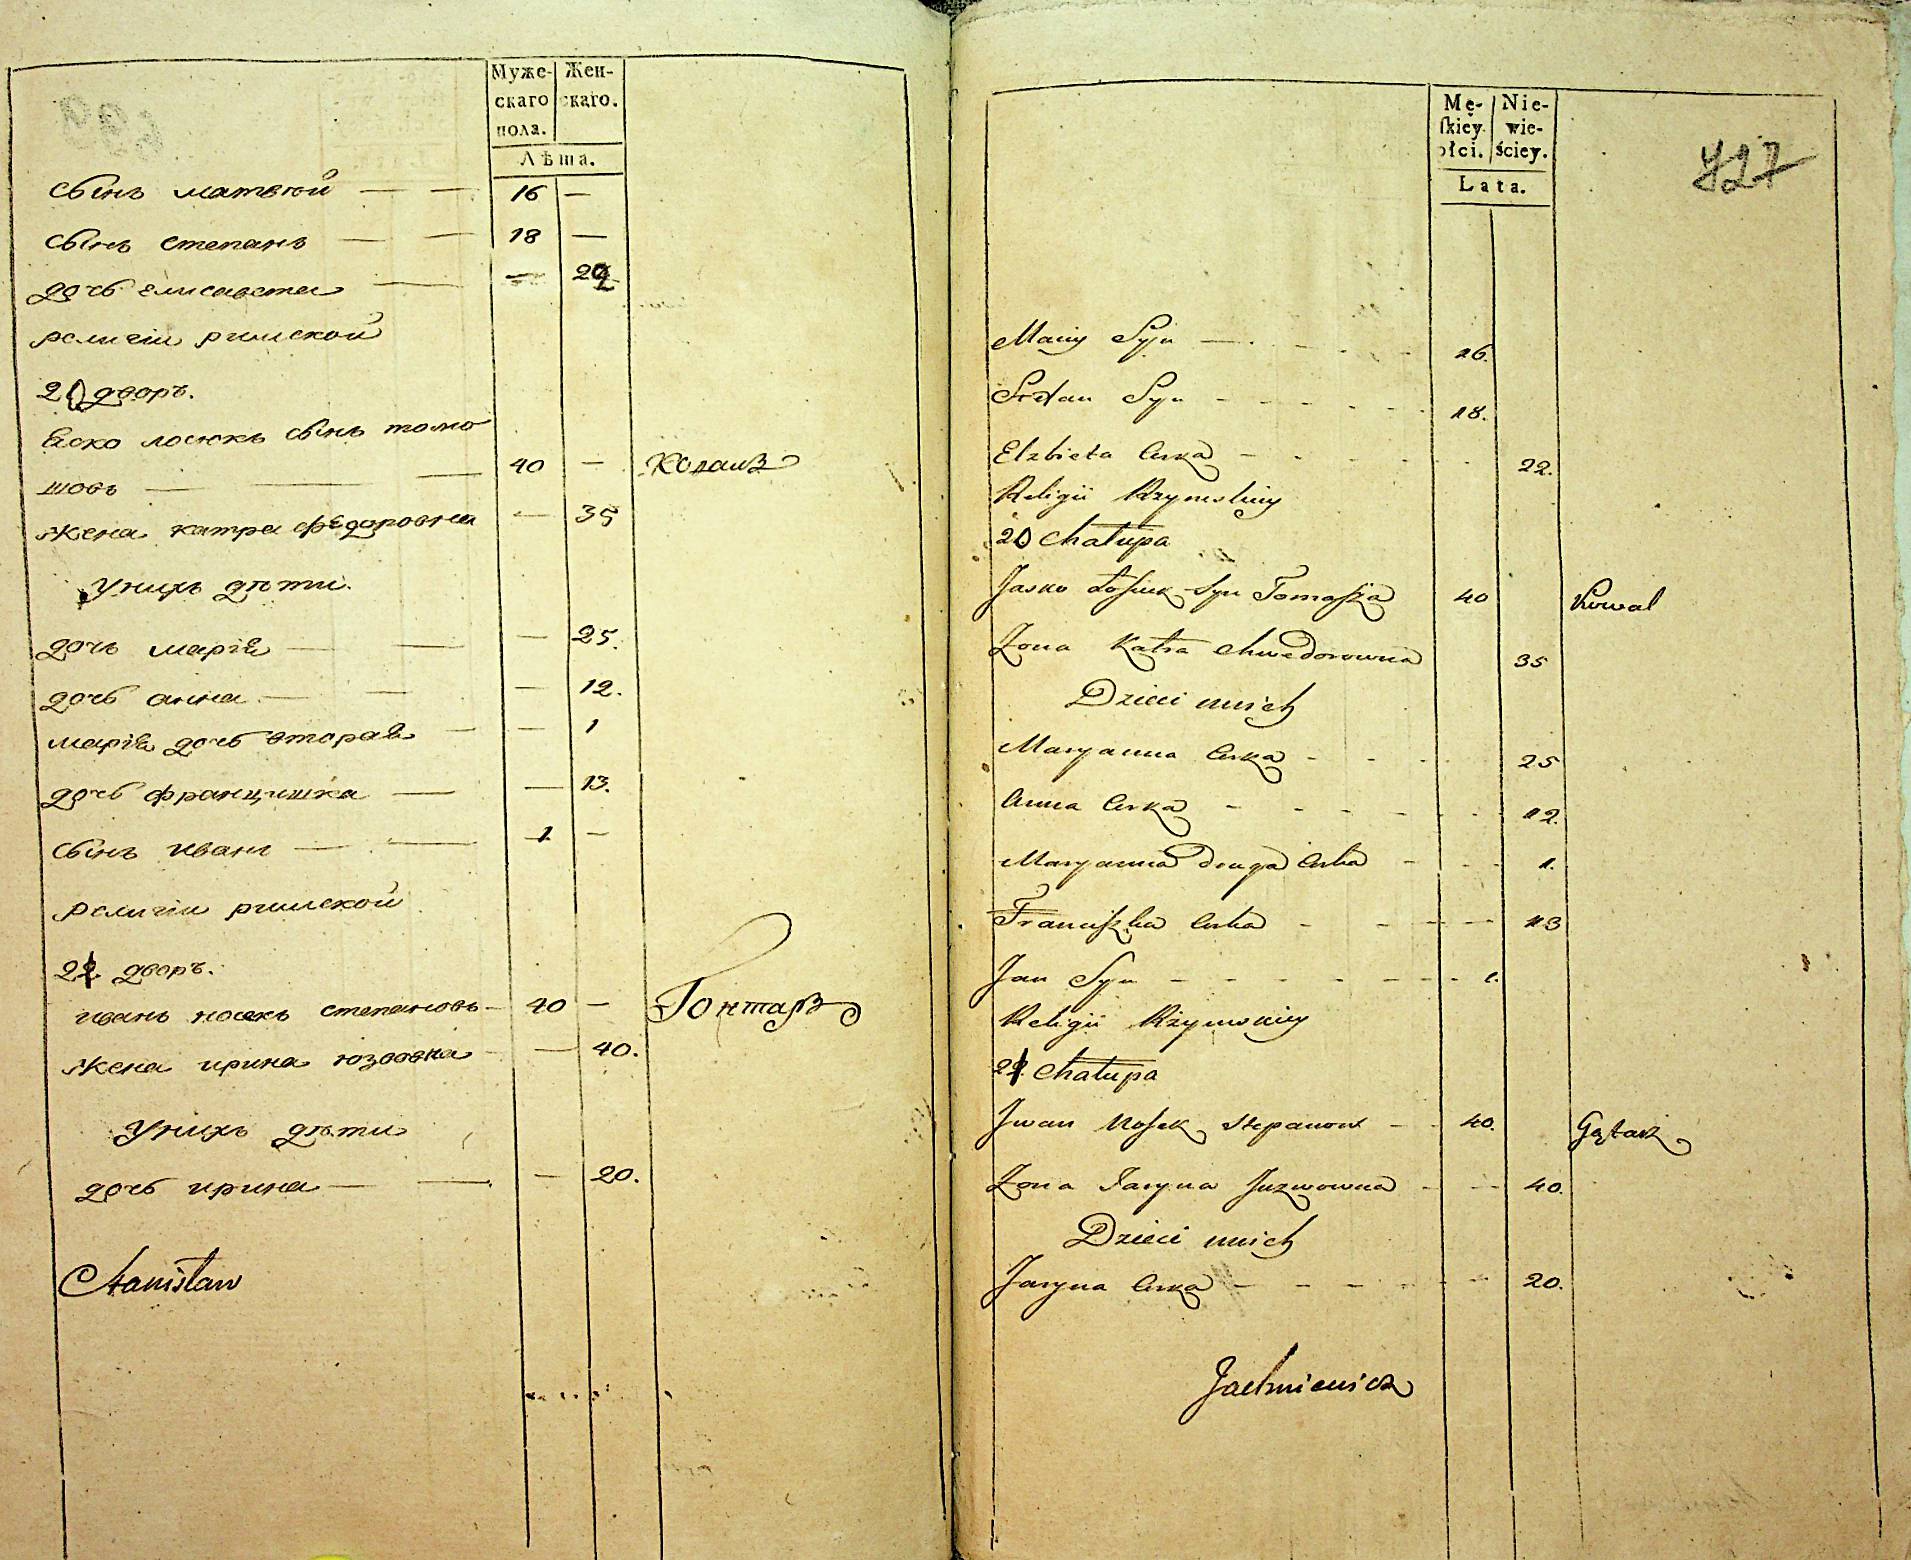 Муже-
скаго
пола.
Жен-
скаго.
Лѣта.
сынъ матвѣй — — 16 —
сынъ степанъ — — 18 —
дочь елисавета — — 22
религіи римской
20 дворъ.
Яско лосюкъ сынъ томо
шовъ — — — 40 — Коваль
жена катра федоровна — 35
У нихъ дѣти.
дочь марія — — — 25.
дочь анна — — — 12.
марія дочь вторая — — 1
дочь францишка — — 13.
сынъ иванъ — — 1 —
религіи римской
21 дворъ.
иванъ носекъ степановъ — 40 — Гонтарь
жена ирина юзвовна — — 40.
У нихъ дѣти
дочь ирина — — — 20.
Stanisław
Mę-
skiey
płci.
Nie-
wie-
ściey.
Lata.
727
Maciey Syn — 16.
Stefan Syn 18.
Elzbieta Curka 22.
Religii Rzymskiey
20 Chałupa
Jasko Łosiuk Syn Tomasza 40 Kowal
Zona Katra Chwedorowna 35
Dzieci u nich
Maryanna Curka 25
Anna Curka 12.
Maryanna druga Curka 1.
Franciszka Curka 13
Jan Syn 1.
Religii Rzymskiey
21 Chałupa
Jwan Nosek Stepanow 40. Gątarz
Zona Jaryna Juzwowna 40.
Dzieci u nich
Jaryna Curka 20.
Jachniewicz